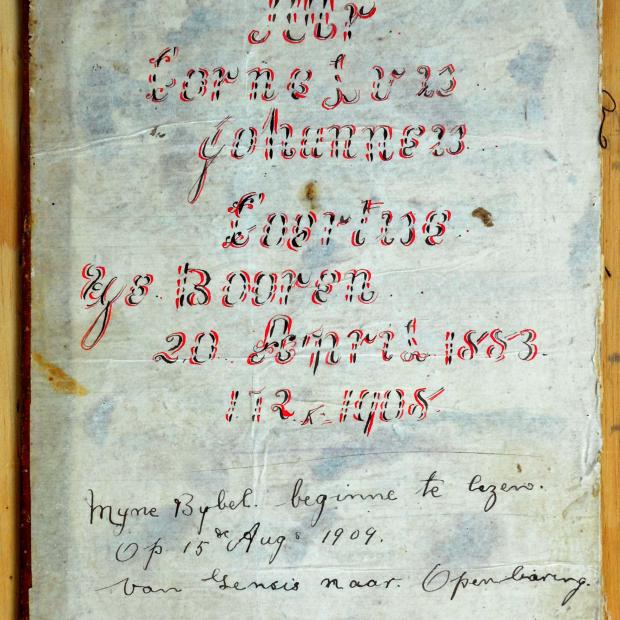 Mr
Cornelvis
Johannes
Coertse
Ge Booren
20 April 1883.
1908
Myne Bybel. beginne te lezen.
Op 15de Augs 1909.
van Gensis naar. Openbaring.